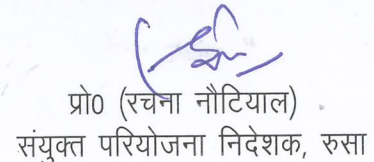 प्रो0 (रचना नौटियाल)
संयुक्त परियोजना निदेशक, रुसा